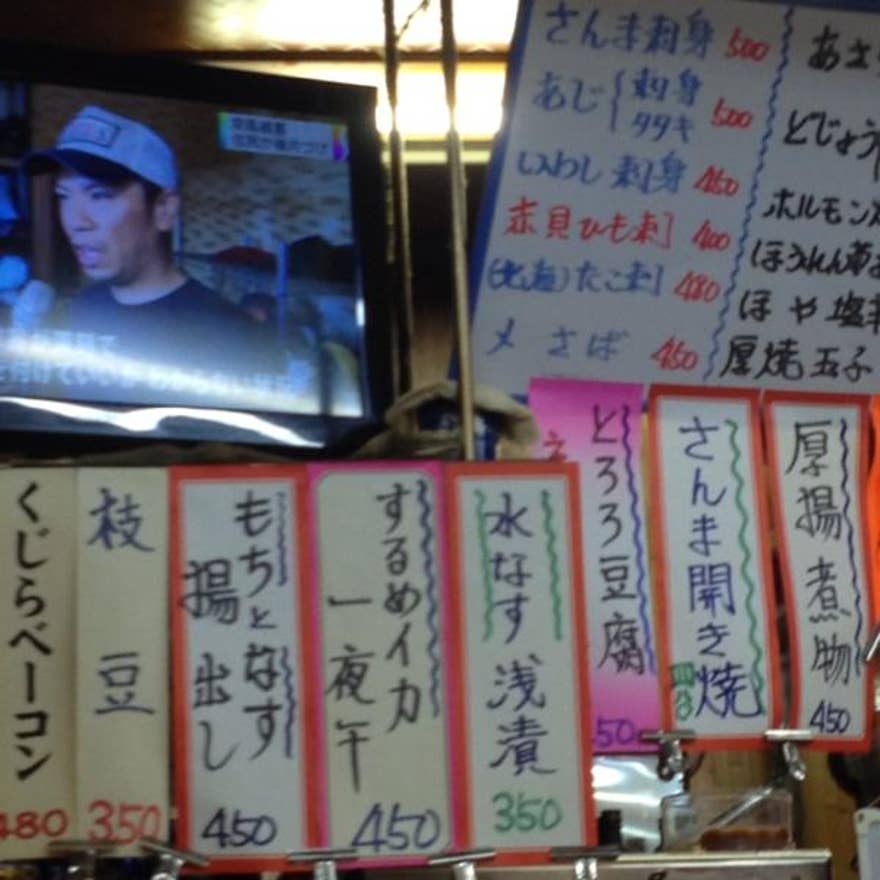 さんま刺身 500
あじ{刺身 タタキ 500
いわし刺身 450
赤貝ひも刺 400
(北海)たこ刺 480
〆さば 450
あさ
どじょう
ホルモン
ほうれん草
ほや塩
厚焼玉子
くじらベーコン
480
枝豆
350
もちとなす
揚出し
450
するめイカ
一夜干
450
水なす浅漬
350
とろろ豆腐
50
さんま開き焼
厚揚煮物
450